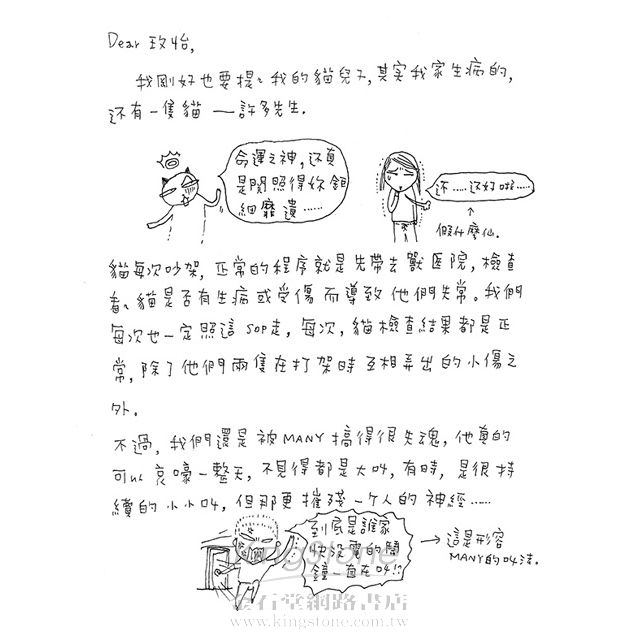 Dear 玫怡,
我剛好也要提提我的貓兒子,其實我家生病的,
还有一隻貓——許多先生.
命運之神,还真
是関照得妳鉅
細靡遺……
还……还好啦……
假什麼仙.
貓每次吵架,正常的程序就是先帶去獸医院,檢查
看看貓是否有生病或受傷而導致他們失常。我們
每次也一定照這SOP走,每次,貓檢查結果都是正
常,除了他們兩隻在打架時互相弄出的小傷之
外.
不過,我們還是被MANY搞得很失魂,他真的
可以哀嚎一整天,不見得都是大叫,有時,是很持
續的小小叫,但那更摧殘一个人的神經……
到底是誰家
快没電的鬧
鐘一直在叫!?
這是形容
MANY的叫法.
Kingstone
金石堂網路書店
www.kingstone.com.tw